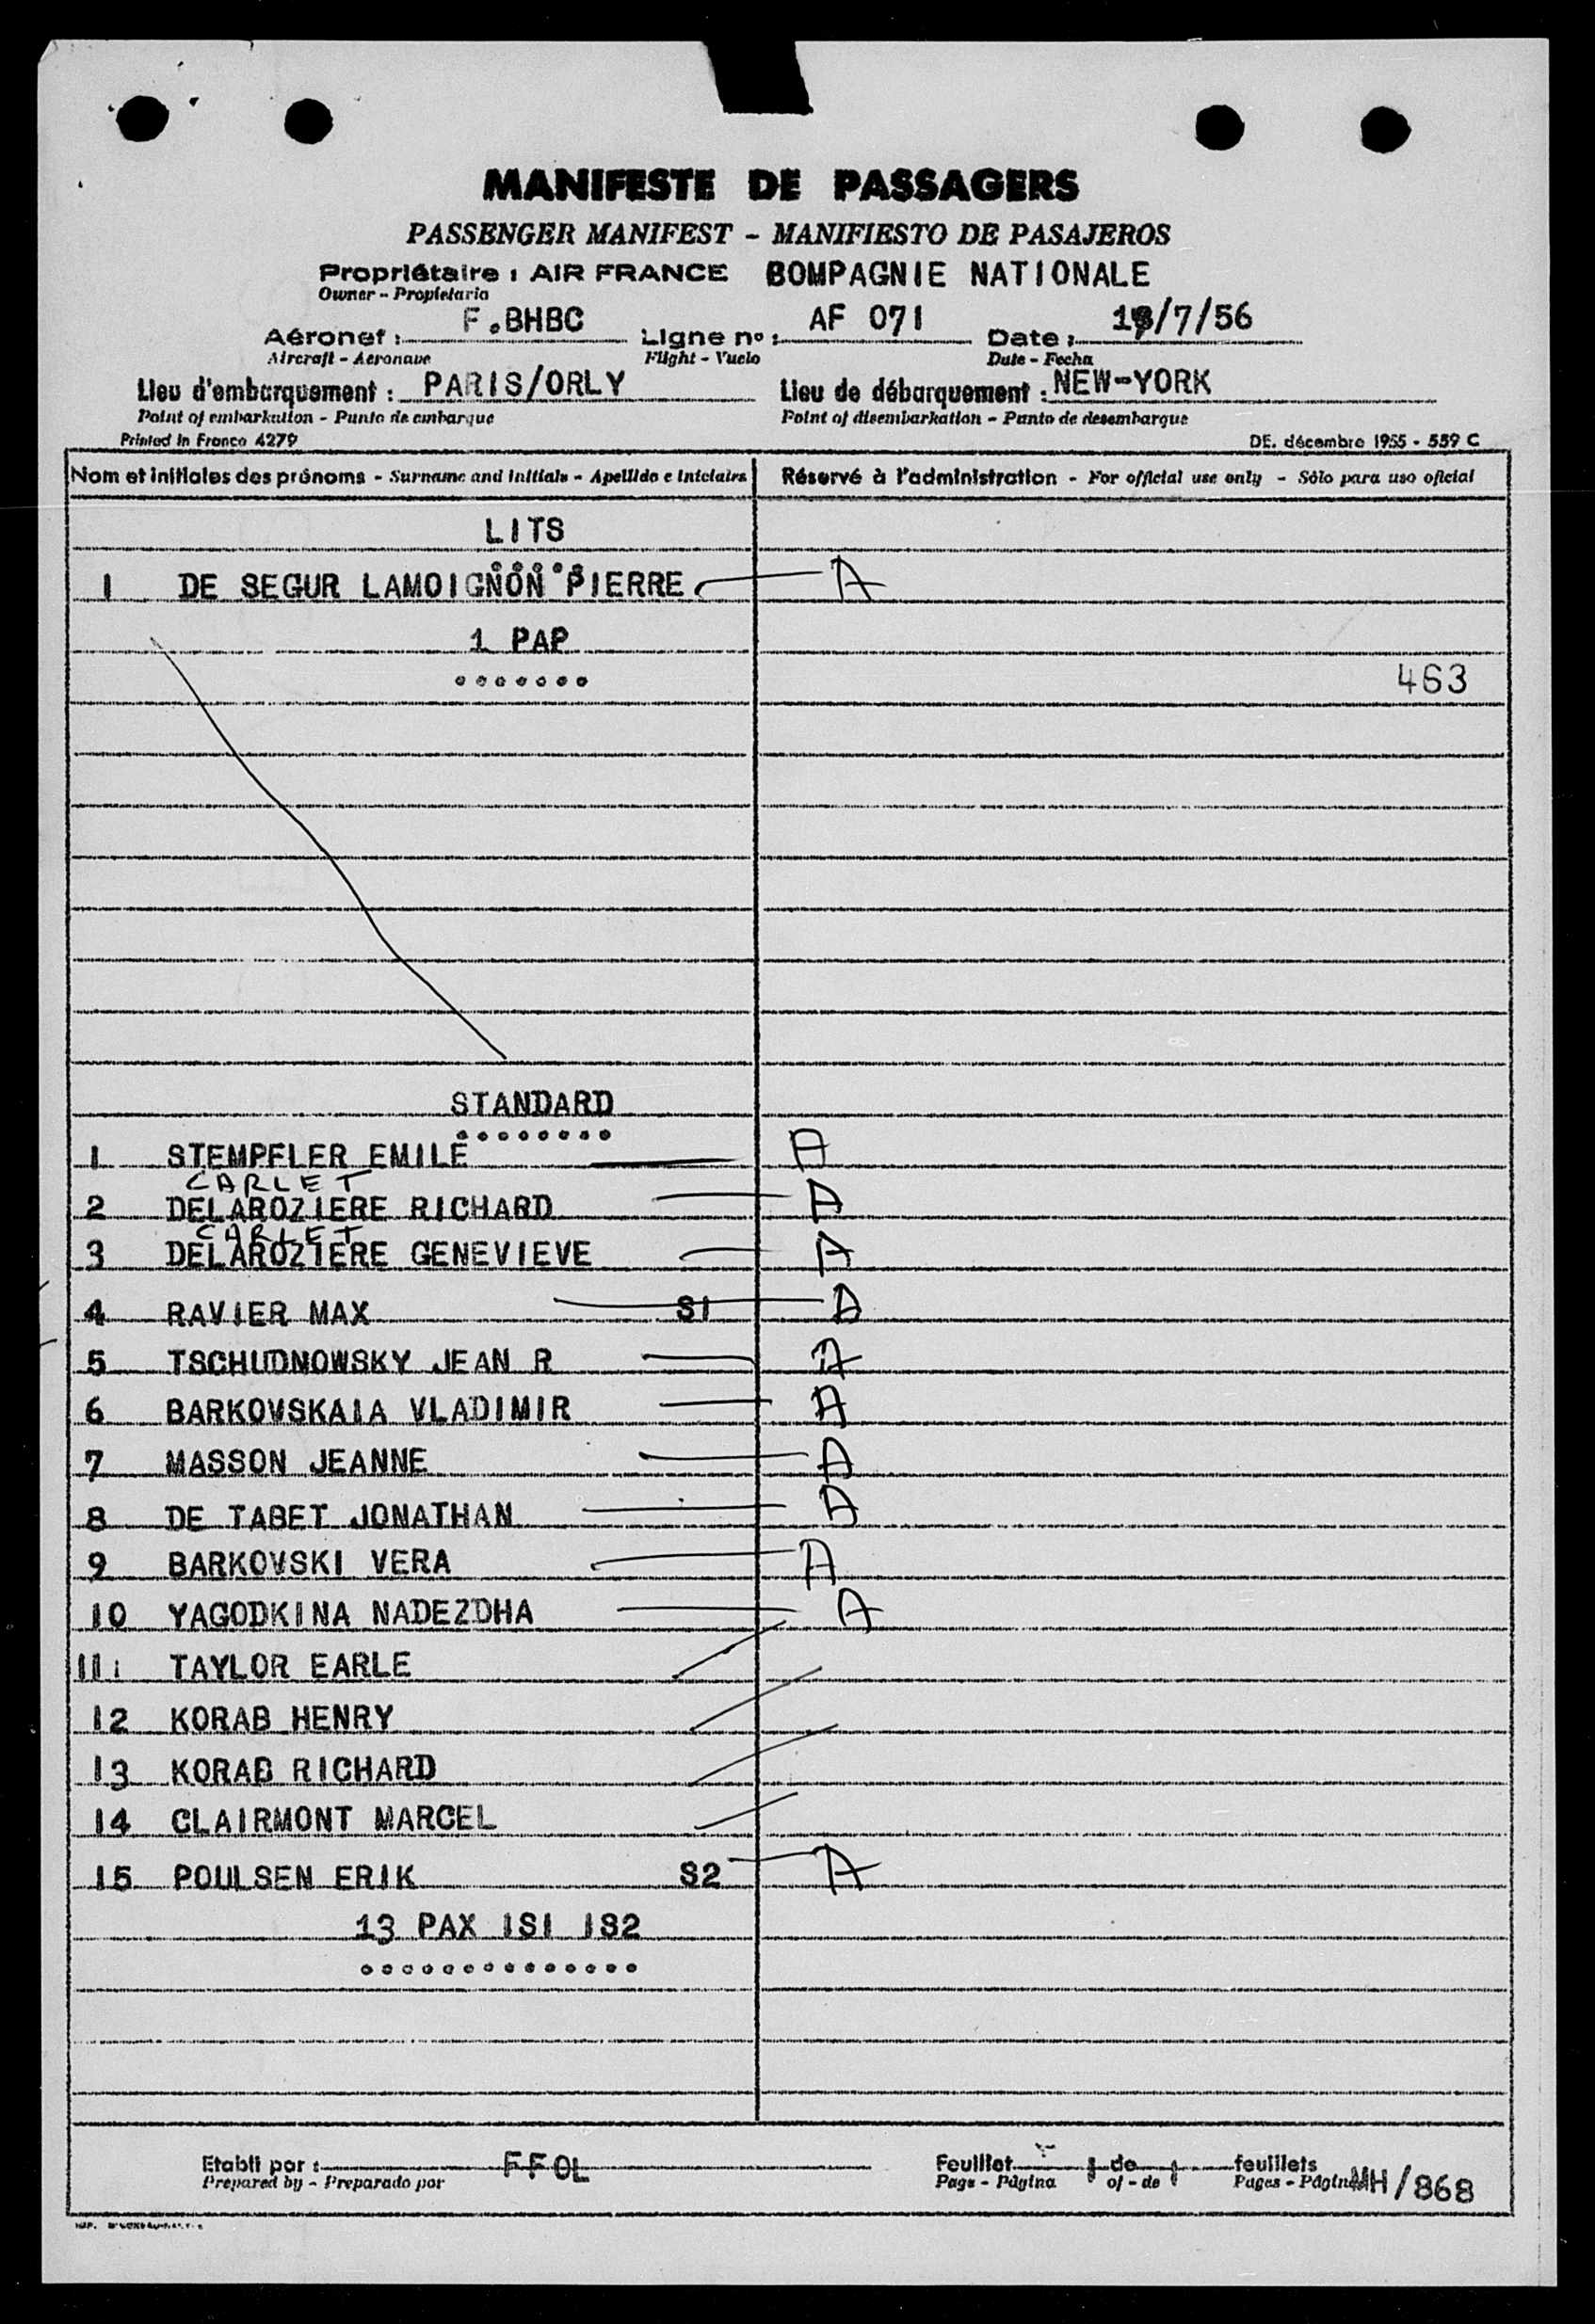 MANIFESTE DE PASSAGERS
PASSENGER MANIFEST - MANIFIESTO DE PASAJEROS
Propriétaire : AIR FRANCE BOMPAGNIE NATIONALE
Owner - Propietario
Aéronef : F.BHBC Ligne no : AF 071 Date : /7/56
Aircraft - Aeronave Flight - Vuelo Date - Fecha
Lieu d'embarquement : PARIS/ORLY Lieu de débarquement : NEW-YORK
Point of embarkation - Punto de embarque Point of disembarkation - Punto de desembarque
Printed in France 4279 DE. décembre 1955 - 559 C
Nom et initiales des prénoms - Surname and initials - Apellido e iniciales Réservé à l'administration - For official use only - Sólo para uso oficial
LITS
1 DE SEGUR LAMOIGNON PIERRE A
1 PAP
463
STANDARD
1 STEMPFLER EMILE A
CARLET
2 DELAROZIERE RICHARD A
CARLET
3 DELAROZIERE GENEVIEVE A
4 RAVIER MAX S1 A
5 TSCHUDNOWSKY JEAN R A
6 BARKOVSKAIA VLADIMIR A
7 MASSON JEANNE A
8 DE TABET JONATHAN A
9 BARKOVSKI VERA A
10 YAGODKINA NADEZDHA A
11 TAYLOR EARLE
12 KORAB HENRY
13 KORAB RICHARD
14 CLAIRMONT MARCEL
15 POULSEN ERIK S2 A
13 PAX 1S1 1S2
Etabli par : FFOL Feuillet 1 de 1 feuillets
Prepared by - Preparado por Page - Página of - de Pages - Páginas MH/868